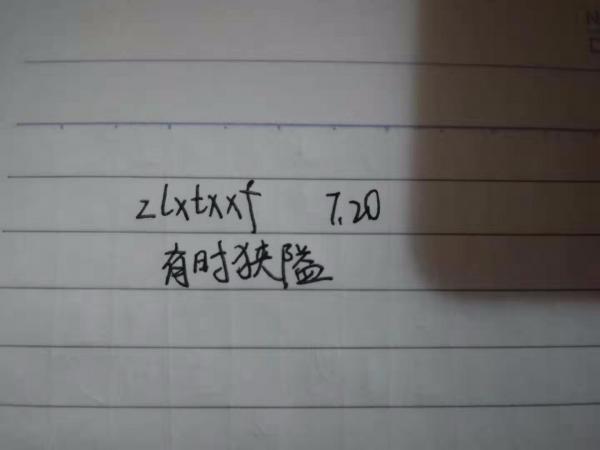 zlxtxxf 7.20
有时狭隘